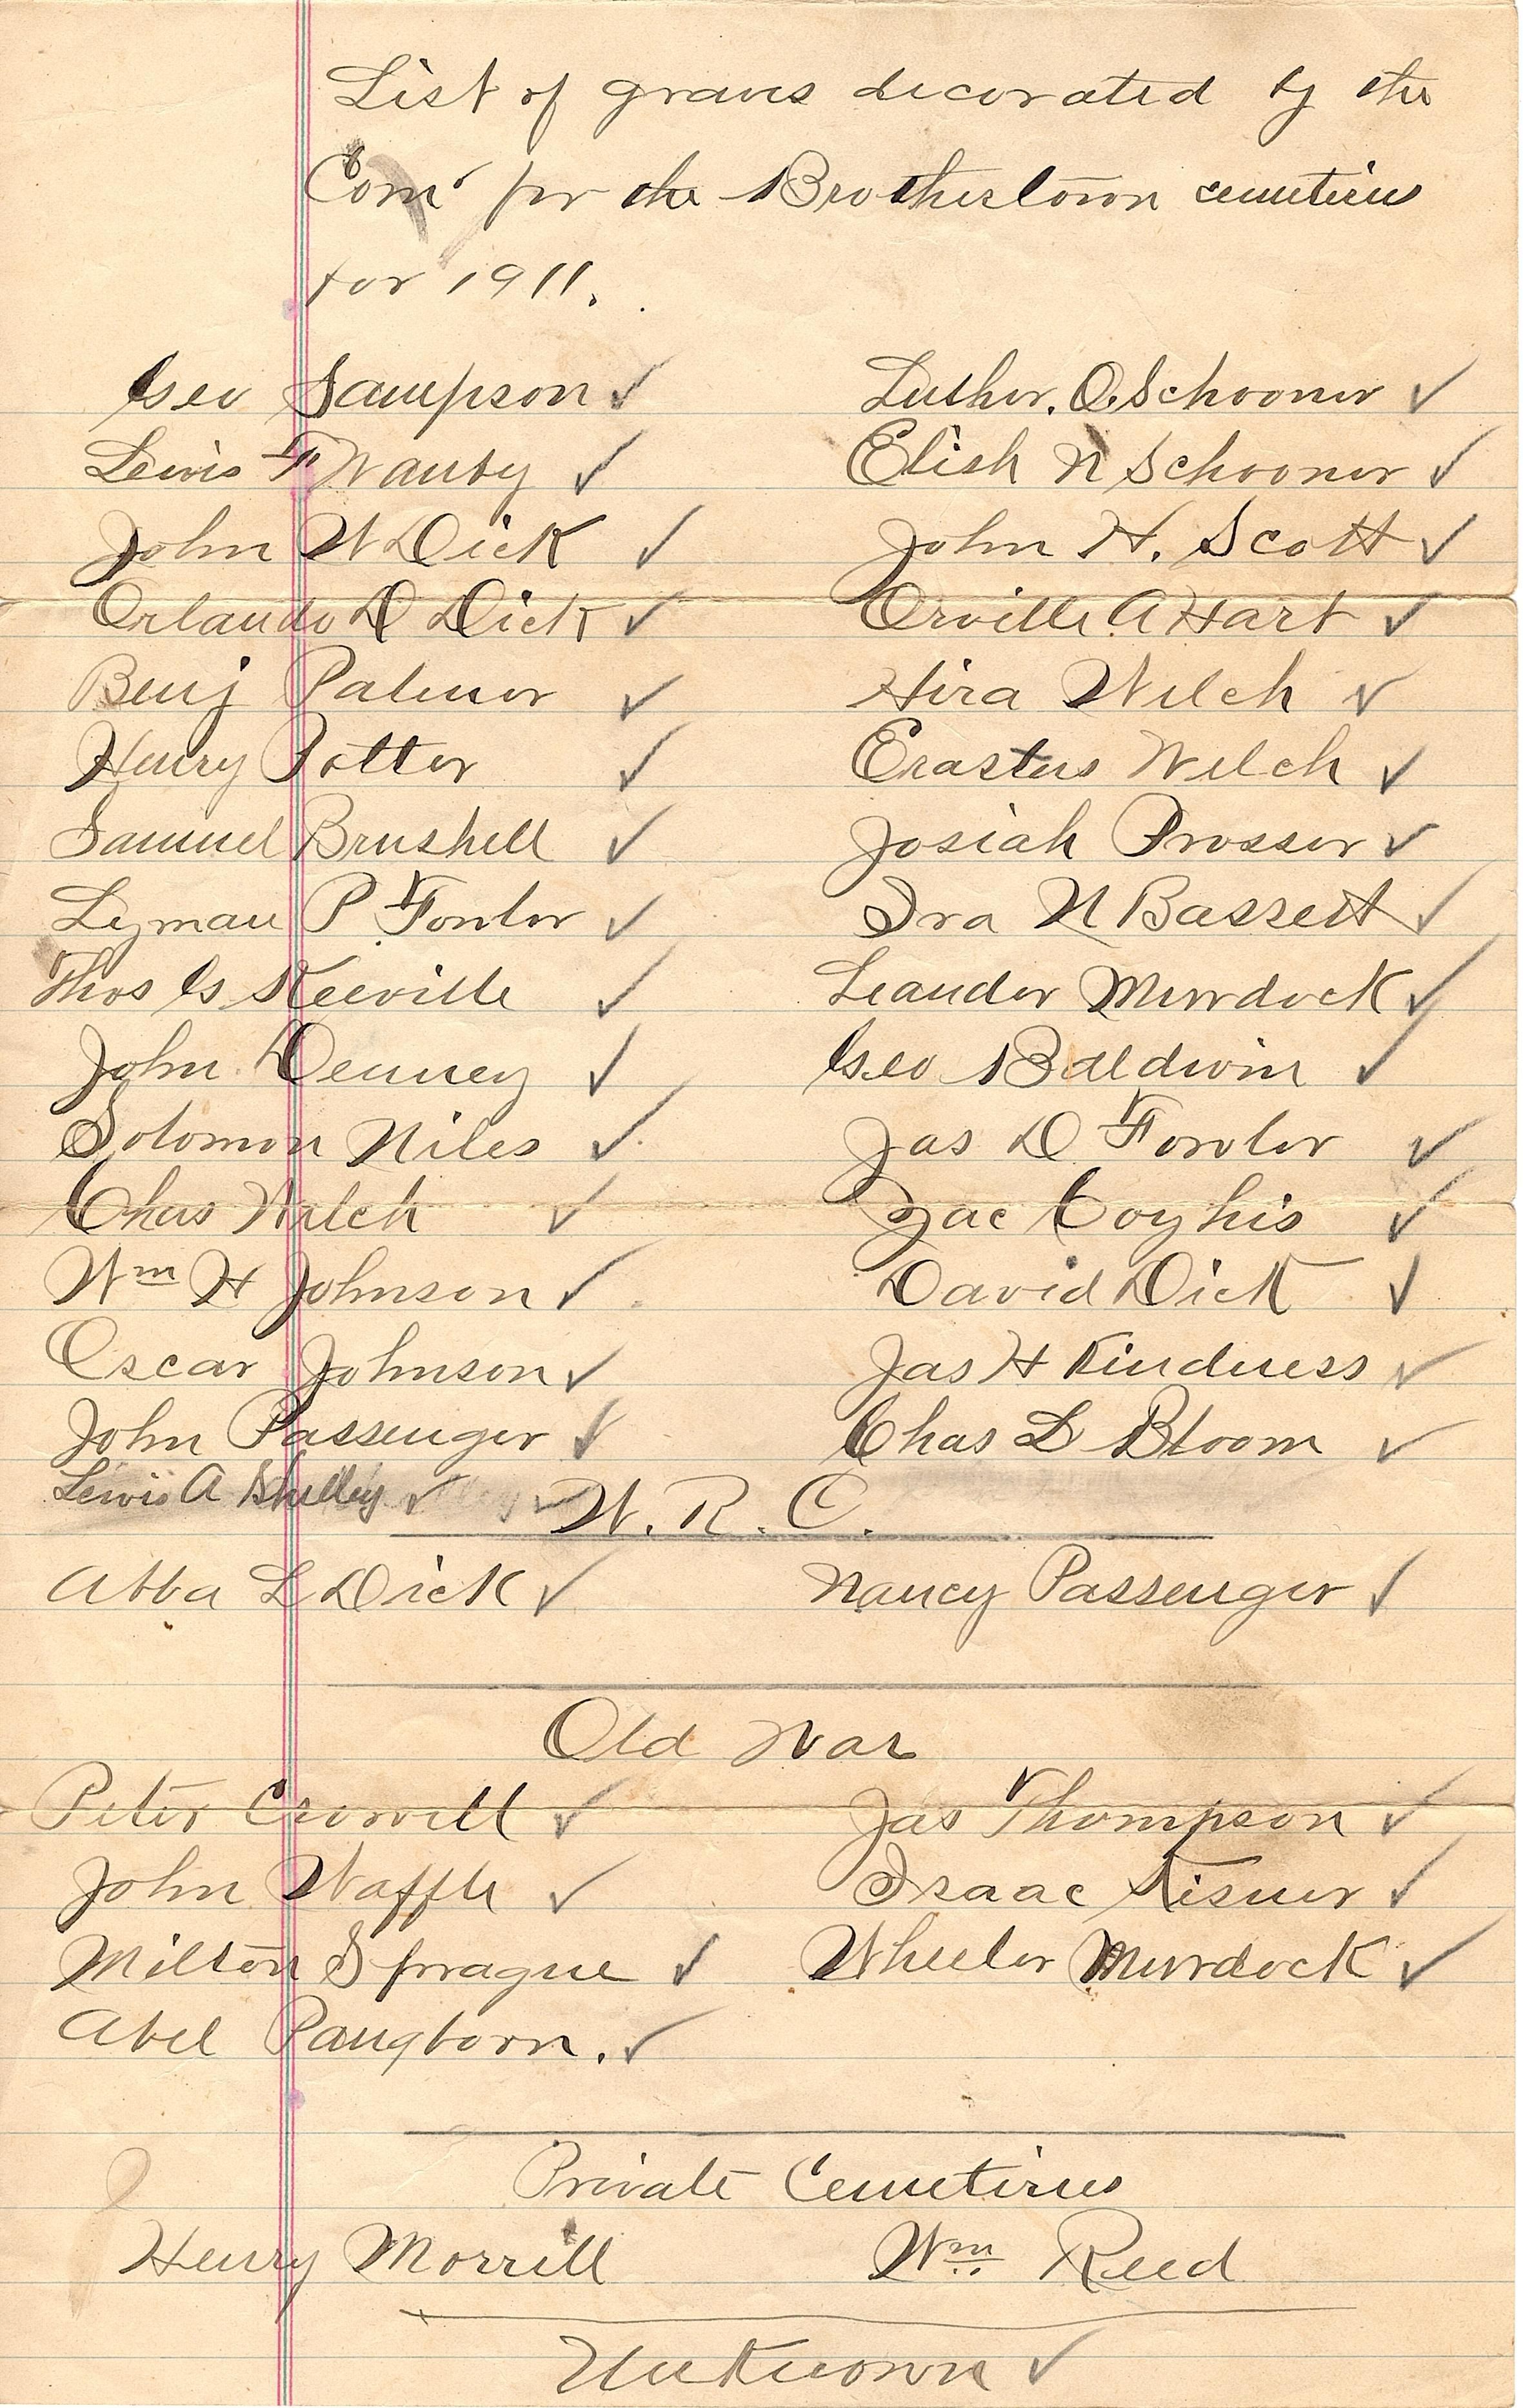 List of graves decorated by the
Com' for the Brothertown cemeteries
for 1911.
Geo Sampson ✓ Luther. Q Schooner ✓
Lewis F Wauby ✓ Elish N Schooner ✓
John W Dick ✓ John H. Scott ✓
Orlando D Dick ✓ Orville A Hart ✓
Benj Palmer ✓ Hira Welch ✓
Henry Potter ✓ Erastus Welch ✓
Samuel Brushell ✓ Josiah Prosser ✓
Lyman P Fowler ✓ Ira N Bassett ✓
Thos G ✓ Leander Murdock ✓
John Denney ✓ Geo Baldwin ✓
Solomon Niles ✓ Jas D Fowler ✓
Chas Welch ✓ Zac Coyhis ✓
Wm H Johnson ✓ David Dick ✓
Oscar Johnson ✓ Jas H Kindness ✓
John Passenger ✓ Chas L Bloom ✓
Lewis A ✓ W. R. C.
Abba L Dick ✓ Nancy Passenger ✓
Old War
Peter ✓ Jas Thompson ✓
John Waffle ✓ Isaac Kisner ✓
Milton Sprague ✓ Wheeler Murdock ✓
Abel Pangborn. ✓
Private Cemeteries
Henry Morrill Wm Reed
Unknown ✓